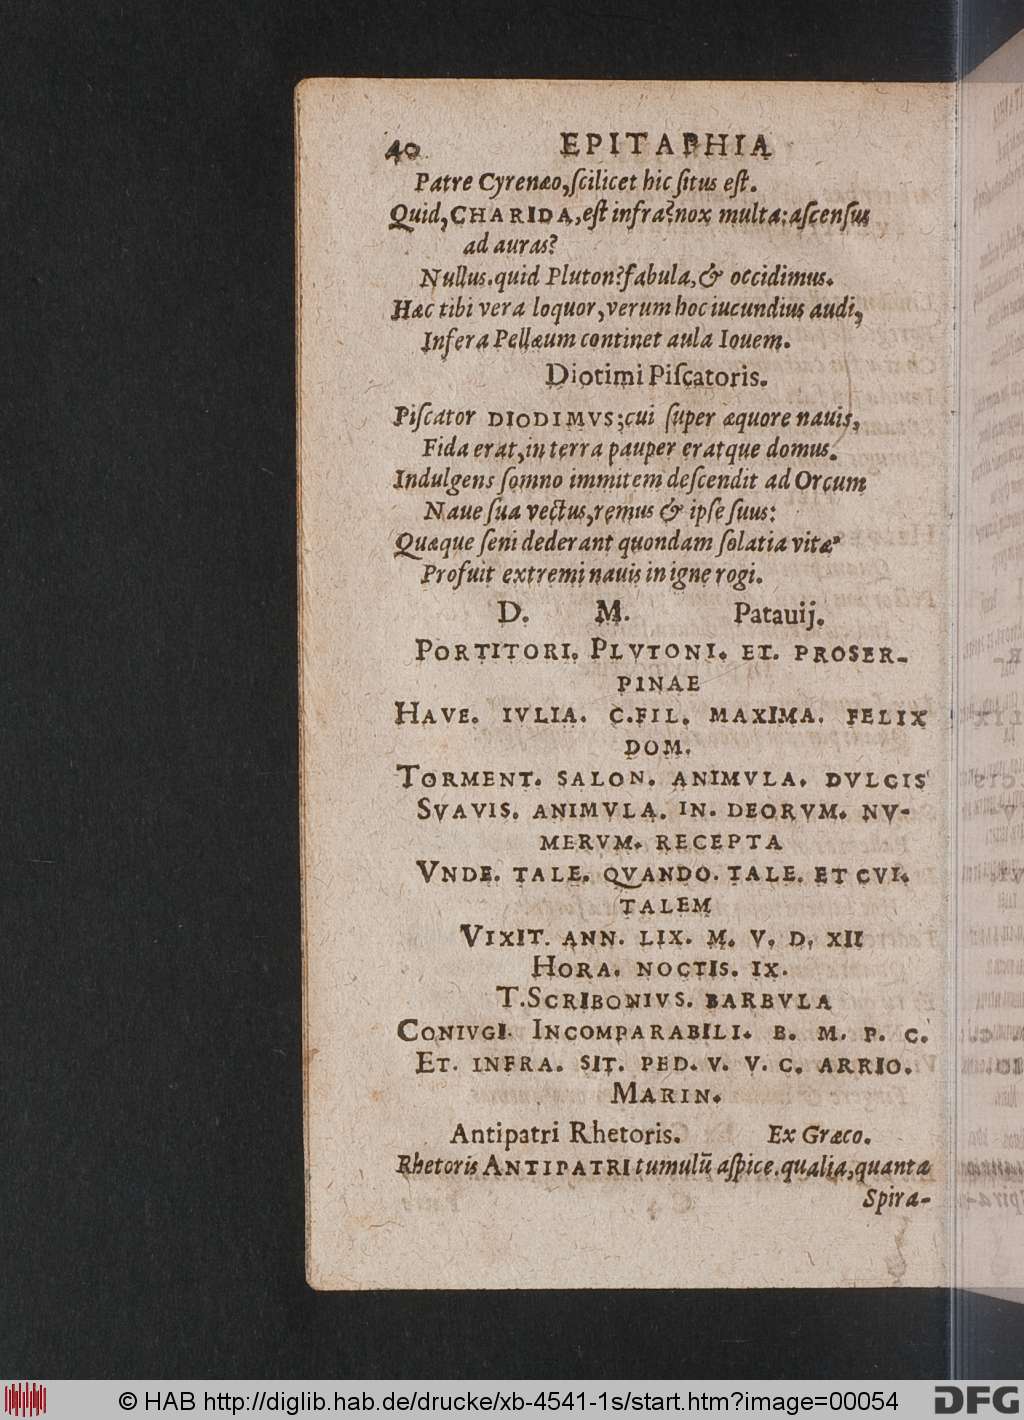 40 EPITAPHIA
Patre Cyrenæo, ſcilicet hic ſitus eſt.
Quid, CHARIDA, eſt infra? nox multa: aſcenſus
ad auras?
Nullus. quid Pluton? fabula, & occidimus.
Hæc tibi vera loquor, verum hoc iucundius audi,
Infera Pellæum continet aula Iouem.
Diotimi Piſcatoris.
Piſcator DIODIMVS; cui ſuper æquore nauis,
Fida erat, in terra pauper eratque domus.
Indulgens ſomno immitem deſcendit ad Orcum
Naue ſua vectus, remus & ipſe ſuus:
Quæque ſeni dederant quondam ſolatia vitæ
Profuit extremi nauis in igne rogi.
D. M. Patauij.
PORTITORI. PLVTONI. ET. PROSER-
PINAE
HAVE. IVLIA. C. FIL. MAXIMA. FELIX
DOM.
TORMENT. SALON. ANIMVLA. DVLCIS
SVAVIS. ANIMVLA. IN. DEORVM. NV-
MERVM. RECEPTA
VNDE. TALE. QVANDO. TALE. ET CVI.
TALEM
VIXIT. ANN. LIX. M. V. D. XII
HORA. NOCTIS. IX.
T. SCRIBONIVS. BARBVLA
CONIVGI. INCOMPARABILI. B. M. P. C.
ET. INFRA. SIT. PED. V. V. C. ARRIO.
MARIN.
Antipatri Rhetoris. Ex Græco.
Rhetoris ANTIPATRI tumulū aſpice. qualia, quanta
Spira-
© HAB http://diglib.hab.de/drucke/xb-4541-1s/start.htm?image=00054 DFG